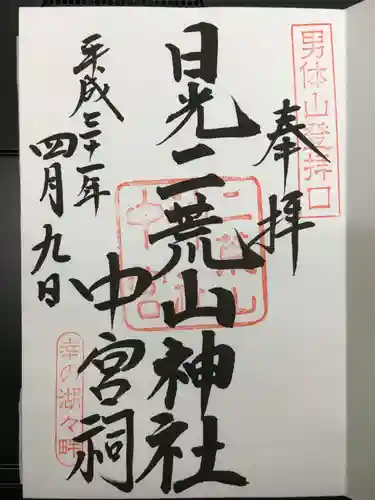 男体山登拝口
奉拝
日光二荒山神社
中宮祠
平成三十一年
四月九日
幸の湖々畔